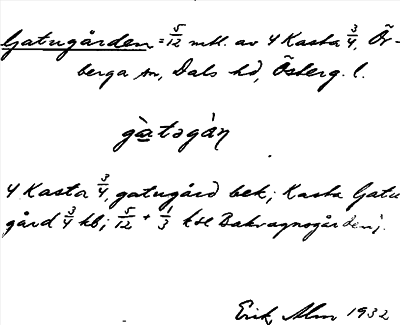 Gatugården = 5/12 mtl. av 4 Kasta 3/4, Ör-
berga sn, Dals hd, Österg. l.
gàtəgàɳ
4 Kasta 3/4, gatugård bek; Kasta Gatu
gård 3/4 hb; 5/12 + 1/3 kse Bakvagnsgården j.
Erik Alm 1932